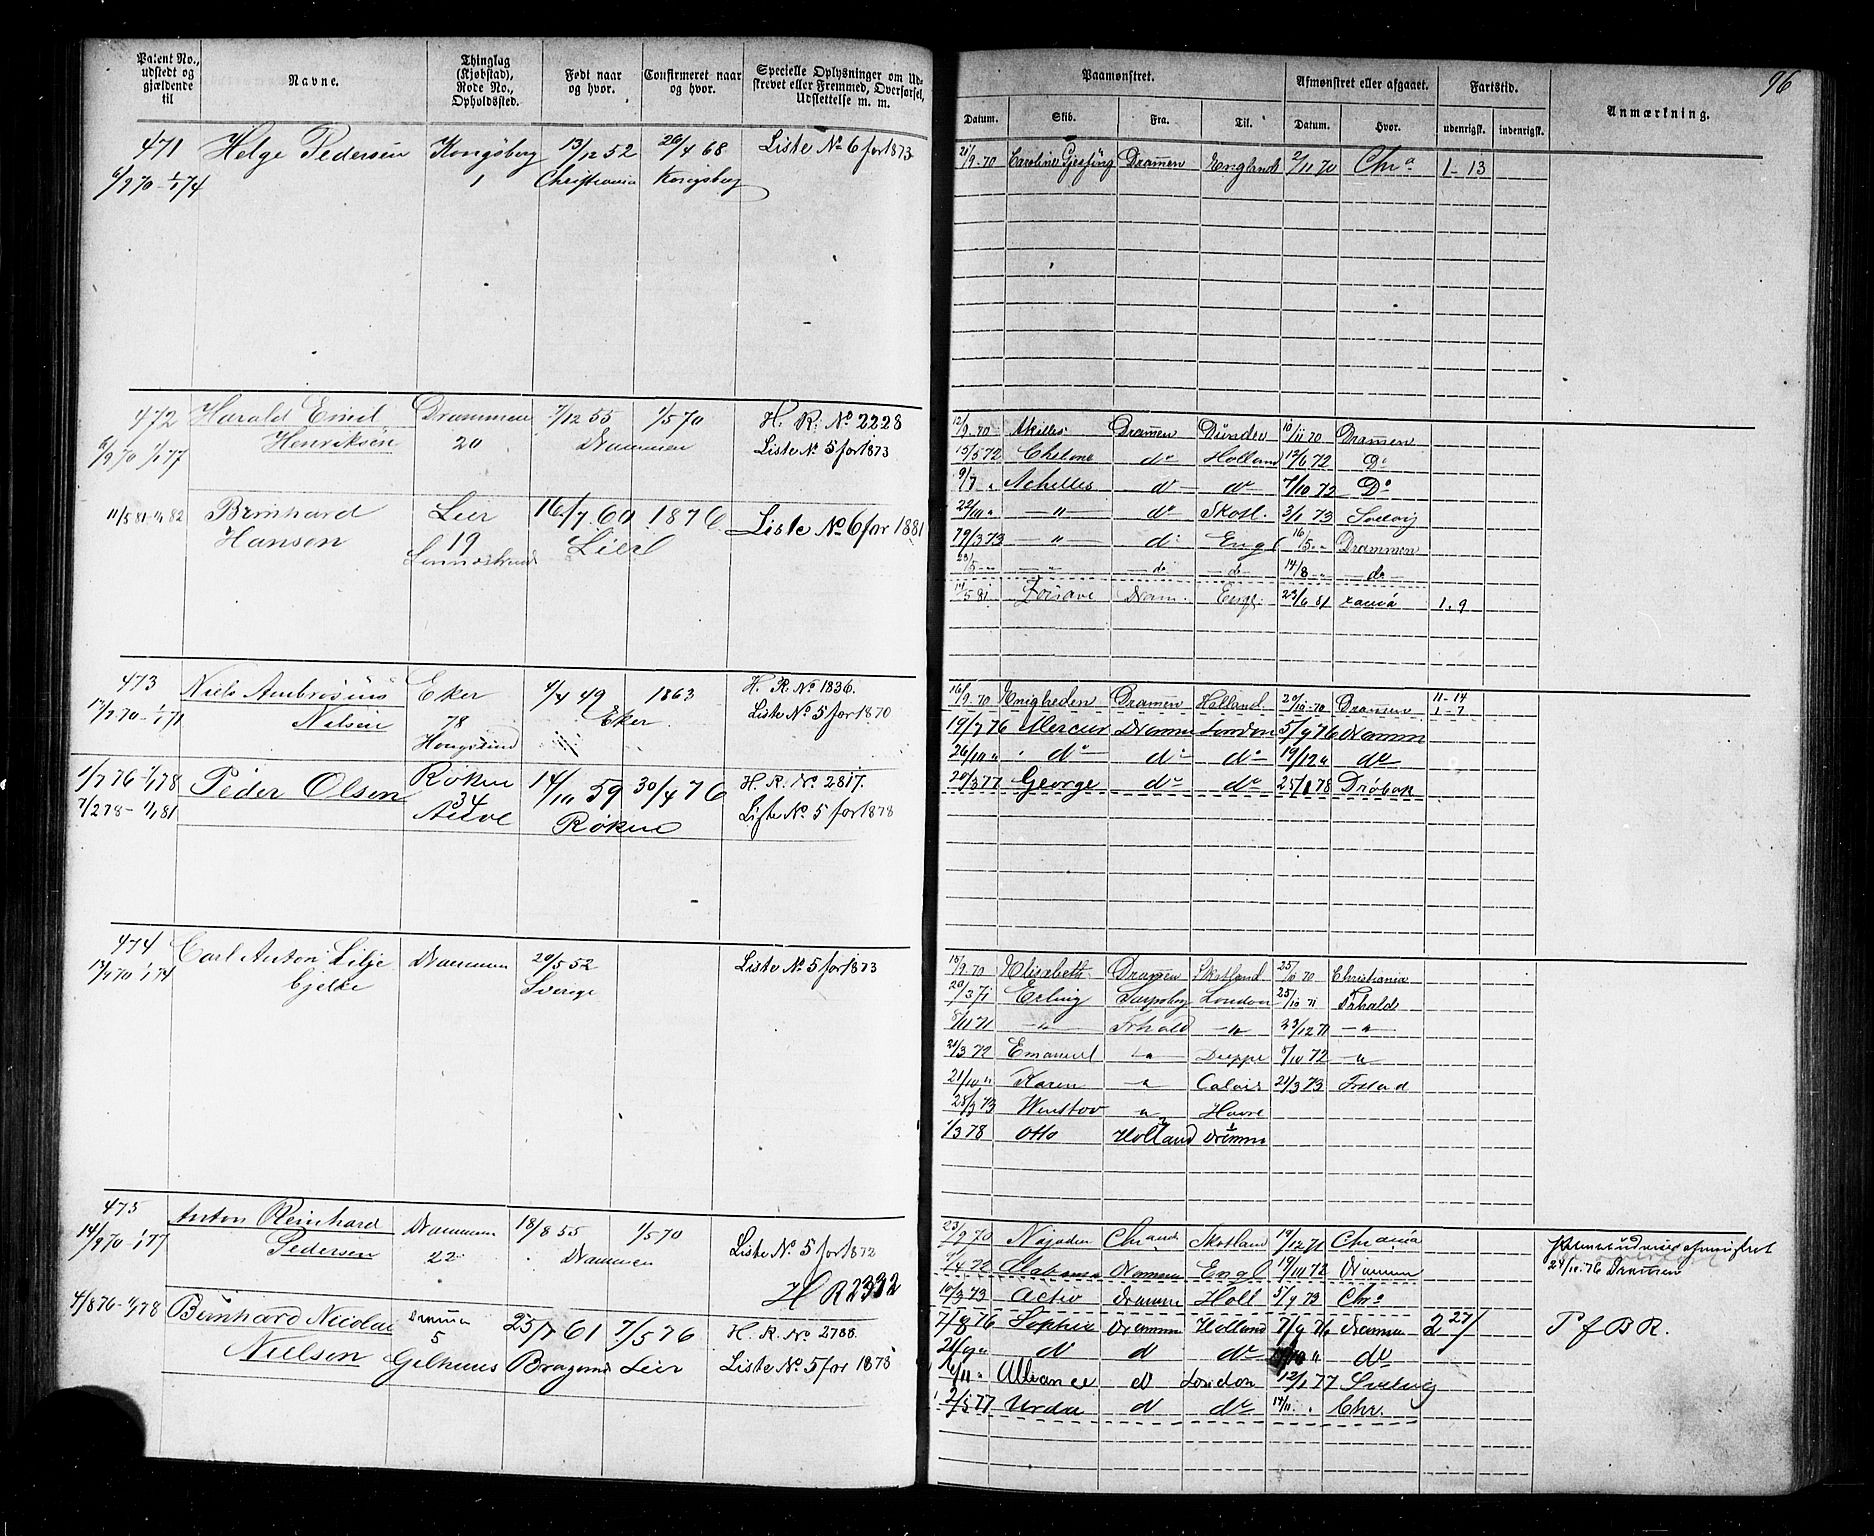 Patent No., udstedt og gjældende til
Navne.
Thinglag (Kjøbstad), Rode No., Opholdssted.
Født naar og hvor.
Confirmeret naar og hvor.
Specielle Oplysninger om Udskrevet eller Fremmed, Overførsel, Udslettelse m. m.
471 Helge Pedersen Kongsberg 13/12 52 26/4 68 Liste No 6 for 1873
6/9 70 - 1/1 74 1 Christiania Kongsberg
472 Harald Emil Drammen 7/12 55 1/5 70 H. R. No 2228
6/9 70 1/1 77 Henriksen 20 Drammen Liste No 5 for 1873
11/5 81 - 1/1 82 Bernhard Lier 16/7 60 1876 Liste No 6 for 1881
Hansen 19 Lier
473 Niels Ambrosius Eker 4/4 49 1863 H. R. No 1836.
Nilsen 78 Eker. Liste No 5 for 1870
Hougsund
1/7 76 - 1/1 78 Peder Olsen Røken 14/10 59 30/4 76 H. R. No 2817.
7/2 78 - 1/1 81 34 Røken Liste No 5 for 1878
474 Carl Anton Lilje Drammen 20/5 52 Liste No 5 for 1873
13/9 70 1/1 74 bjelke Sverige
475 Anton Reinhard Drammen 18/8 55 1/5 70
14/9 70 - 1/1 77 Pedersen 22 Drammen Liste No 5 for 1872
H R 2332
4/8 76 - 1/1 78 Bernhard Nicolai 25/7 61 7/5 76 H. R. No 2788.
Nielsen 5 Gelhuus Bragernes Lier Liste No 5 for 1878
96
Paamønstret.
Afmønstret eller afgaaet.
Fartstid.
Anmærkning.
Datum. Skib. Fra. Til. Datum. Hvor. udenrigst. indenrigst.
21/9 - 70 Caroline Gjessing Drammen England 2/11 70 Chra 1 - 13
12/9. 70 Akilles Drammen Dundee 10/11 70 Drammen
15/5 72 Chelone do Holland 12/6 72 Do
9/7 " Achilles do do 7/10 72 Do
22/11 " — " — do Skotl. 3/1 73 Svelvig
19/3 73 — " — do Engl 16/5 - " Drammen
23/5 - " — " — do do 14/8 - " do
14/5 81 Dram. Engl. 23/6 81 1. 9
16/9. 70 Enigheden Drammen Holland. 20/10 - 70 Drammen 11 - 14
1 - 7
19/7 76 Mercur Dramme London 5/9 76 Dramm
26/10 " do do do 19/12 " do
20/3 77 George do do 25/1 78 Drøbak
15/9. 70 Elisabeth Drammen Skotland 25/10. 70 Christiania
20/3 71 Erling Sarpsborg London 25/10 71 Frhald
8/11 71 — " — Frhald — " — 23/12 71 — " —
21/3 72 Emanuel — " Dieppe 8/10 72 — "
21/10 " Karen — " Calais 21/3 73
25/3 73 " Havre
1/3 78 Otto Holland Dramm
23/9 70 Najaden Chrsand Skotland 19/12 71 Chrania
9/4 72 Alabama Drammen Engl 19/10 72 Dramm
10/3 73 Activ Dramme Holl 5/9 73 Chra
24/10. 76 Drammen
7/8 76 Sophie Dramm Holland 7/9 76 Dramm 2 27/ P f B R.
21/9 " do do do do
Alliance do London 12/1 77 Svelvig
2/5 77 Urda do do 14/11 " Chr.